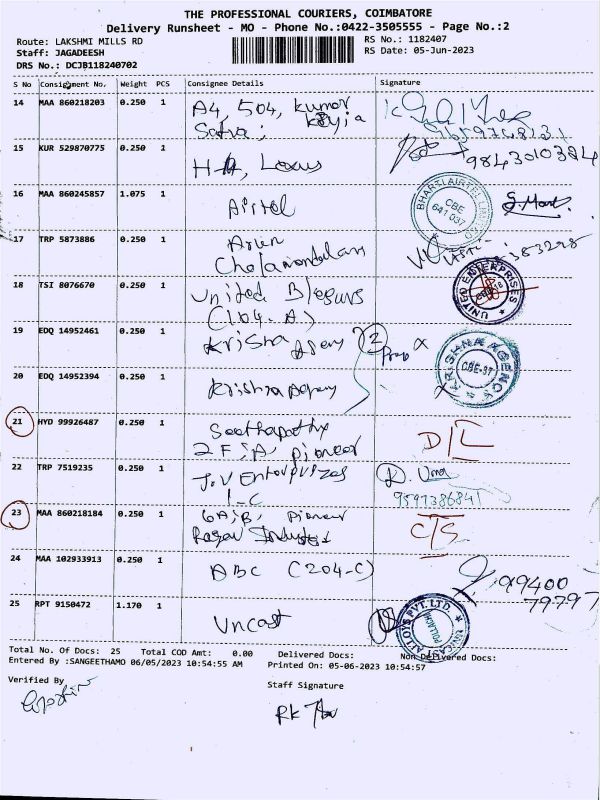 THE PROFESSIONAL COURIERS, COIMBATORE
Delivery Runsheet - MO - Phone No.:0422-3505555 - Page No.:2
Route: LAKSHMI MILLS RD
RS No.: 1182407
Staff: JAGADEESH
RS Date: 05-Jun-2023
DRS No.: DCJB118240702
S No Consignment No. Weight PCS Consignee Details Signature
14 MAA 860218203 0.250 1 A4, 504, kumar
15 KUR 529870775 0.250 1
9843010384
16 MAA 860245857 1.075 1 Airtel
BHARTI AIRTEL LIMITED
CBE
641 037
17 TRP 5873886 0.250 1 Arun
18 TSI 8076670 0.250 1 United
(104-A)
UNITED ENTERPRISES
19 EDQ 14952461 0.250 1 Krisha Agency
2
KRISHNA AGENCY
CBE-37
20 EDQ 14952394 0.250 1 Krishna Agency
21 HYD 99926487 0.250 1 Seethapathy
2F, A, Pioneer
D/L
22 TRP 7519235 0.250 1 J.V Enterprizes
1-C
R. Uma
9597386841
23 MAA 860218184 0.250 1 6A, B, Pioneer
24 MAA 102933913 0.250 1 ABC (204-C)
99400
79797
25 RPT 9150472 1.170 1 Uncast
UNICAST ALLOYS PVT. LTD.
POLLACHI
Total No. Of Docs: 25 Total COD Amt: 0.00 Delivered Docs: Non Delivered Docs:
Entered By :SANGEETHAMO 06/05/2023 10:54:55 AM Printed On: 05-06-2023 10:54:57
Verified By
Staff Signature